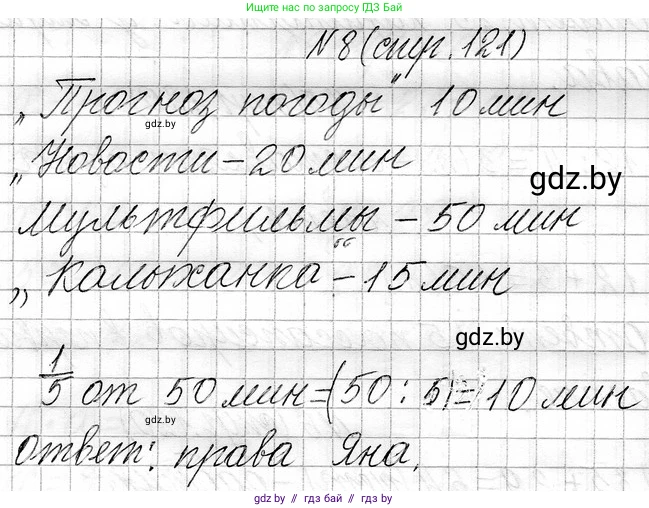 Пишите в поиске ГДЗ Бай
№8 (стр. 121)
„Прогноз погоды" 10 мин
gdz.by
„Новости – 20 мин
gdz.by
Мультфильмы – 50 мин
„Калыханка" – 15 мин
gdz.by
1/5 от 50 мин = (50 : 5) = 10 мин
gdz.by
ответ: права Яна.
gdz.by // гдз бай // gdz.by